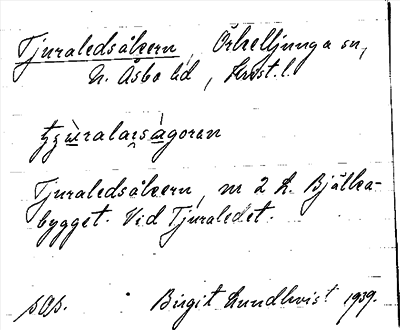 Tjuraledsåkern, Örkelljunga sn,
N. Åsbo hd, Krist. l.
Tjuraledsåkern, nr 2 L. Bjälka-
bygget. Vid Tjuraledet.
Birgit Lundkvist 1939.